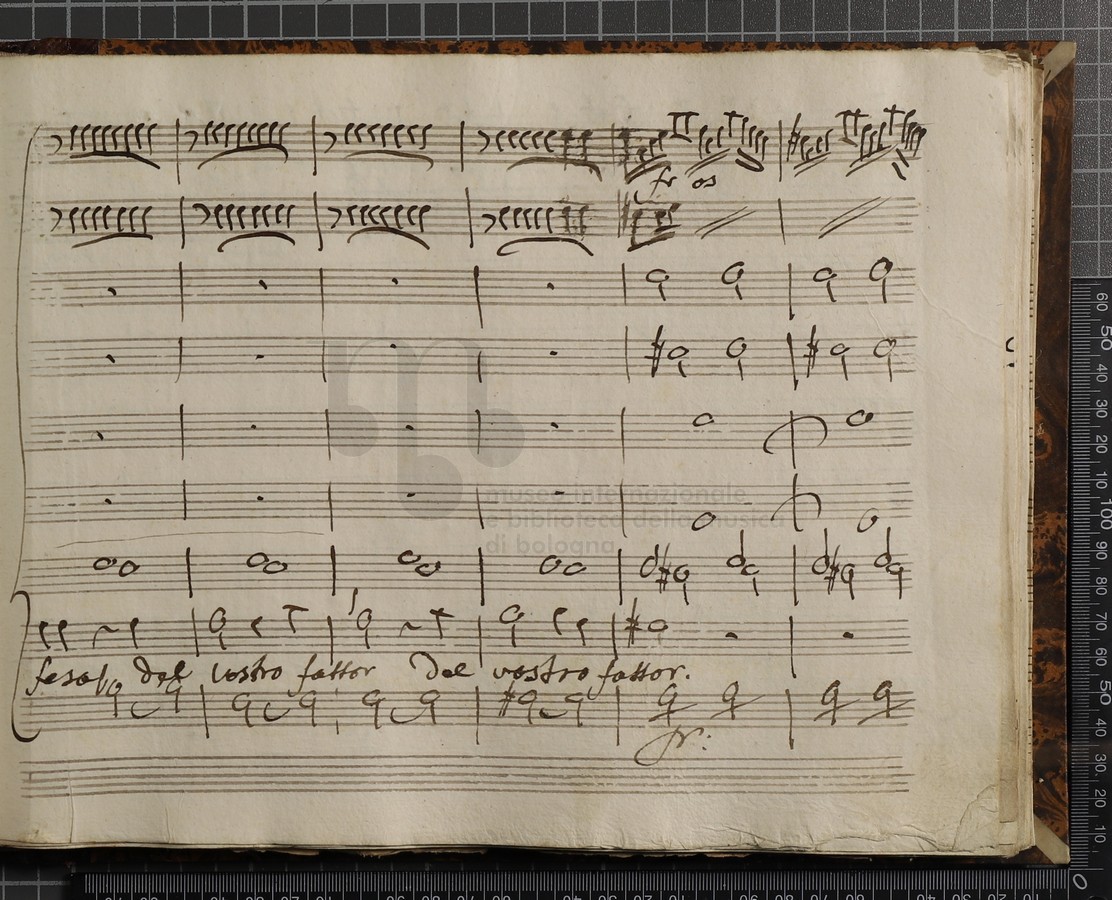 museo internazionale
e biblioteca della musica
di bologna
del vostro fattor Del vostro fattor.
60 50 40 30 20 10 100 90 80 70 60 50 40 30 20 10 0